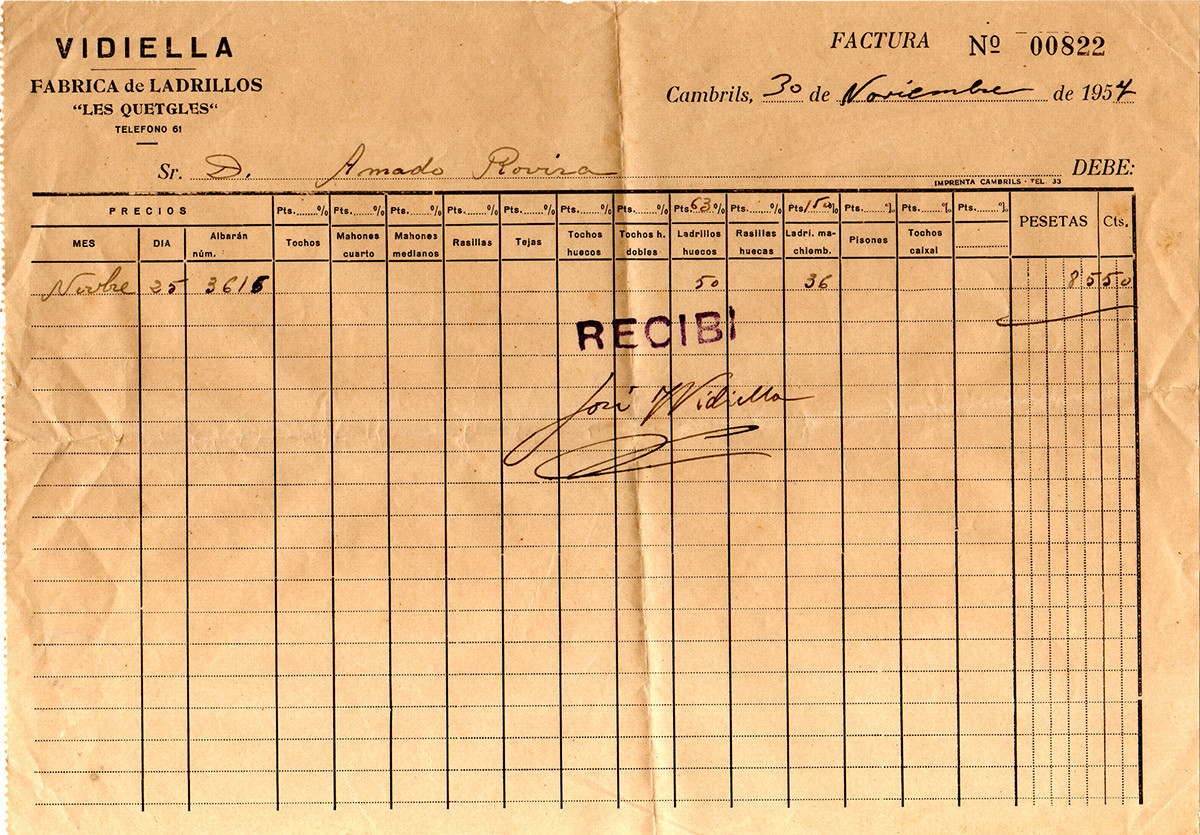 VIDIELLA
FABRICA de LADRILLOS
"LES QUETGLES"
TELEFONO 61
FACTURA Nº 00822
Cambrils, 30 de Noviembre de 1954
Sr. D. Amado Rovira DEBE:
IMPRENTA CAMBRILS - TEL. 33
PRECIOS Pts. % Pts. % Pts. % Pts. % Pts. % Pts. % Pts. % Pts. 63 % Pts. % Pts. 150 % Pts. % Pts. % Pts. % PESETAS Cts.
MES DIA Albarán núm. Tochos Mahones cuarto Mahones medianos Rasillas Tejas Tochos huecos Tochos h. dobles Ladrillos huecos Rasillas huecas Ladri. machiemb. Pisones Tochos caixal
Novbre 25 3616 50 36 85 50
RECIBÍ
José Vidiella